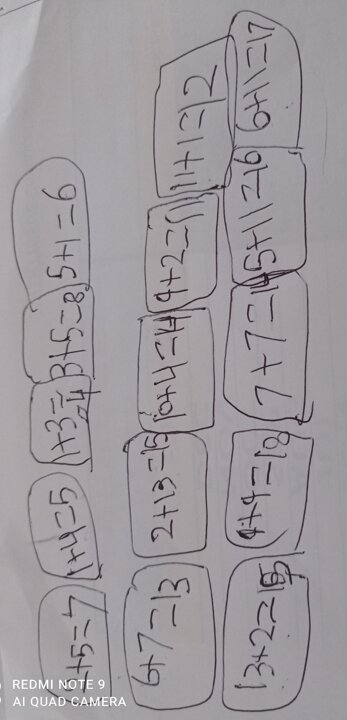 2+5=7 1+4=5 1+3=4 3+5=8 5+1=6
6+7=13 2+13=15 10+4=14 9+2=11 11+1=12
13+2=15 9+9=18 7+7=14 5+11=16 6+11=17
REDMI NOTE 9
AI QUAD CAMERA